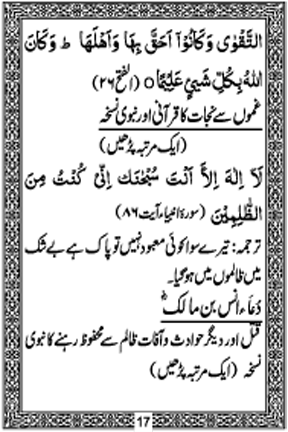 التَّقْوٰى وَكَانُوْٓا اَحَقَّ بِهَا وَاَهْلَهَا ط وَكَانَ
اللهُ بِكُلِّ شَيْئٍ عَلِيْمًا ○ (الفتح ۲۶)
غموں سے نجات کا قرآنی اور نبوی نسخہ
(ایک مرتبہ پڑھیں)
لَآ اِلٰهَ اِلاَّ اَنْتَ سُبْحٰنَكَ اِنِّىْ كُنْتُ مِنَ
الظّٰلِمِيْنَ (سورۃ انبیاء آیت ۸۶)
ترجمہ: تیرے سوا کوئی معبود نہیں تو پاک ہے بے شک
میں ظالموں میں ہو گیا۔
دُعَاء انس بن مالکؓ
قتل اور دیگر حوادث و آفات ظالم سے محفوظ رہنے کا نبوی
نسخہ (ایک مرتبہ پڑھیں)
17